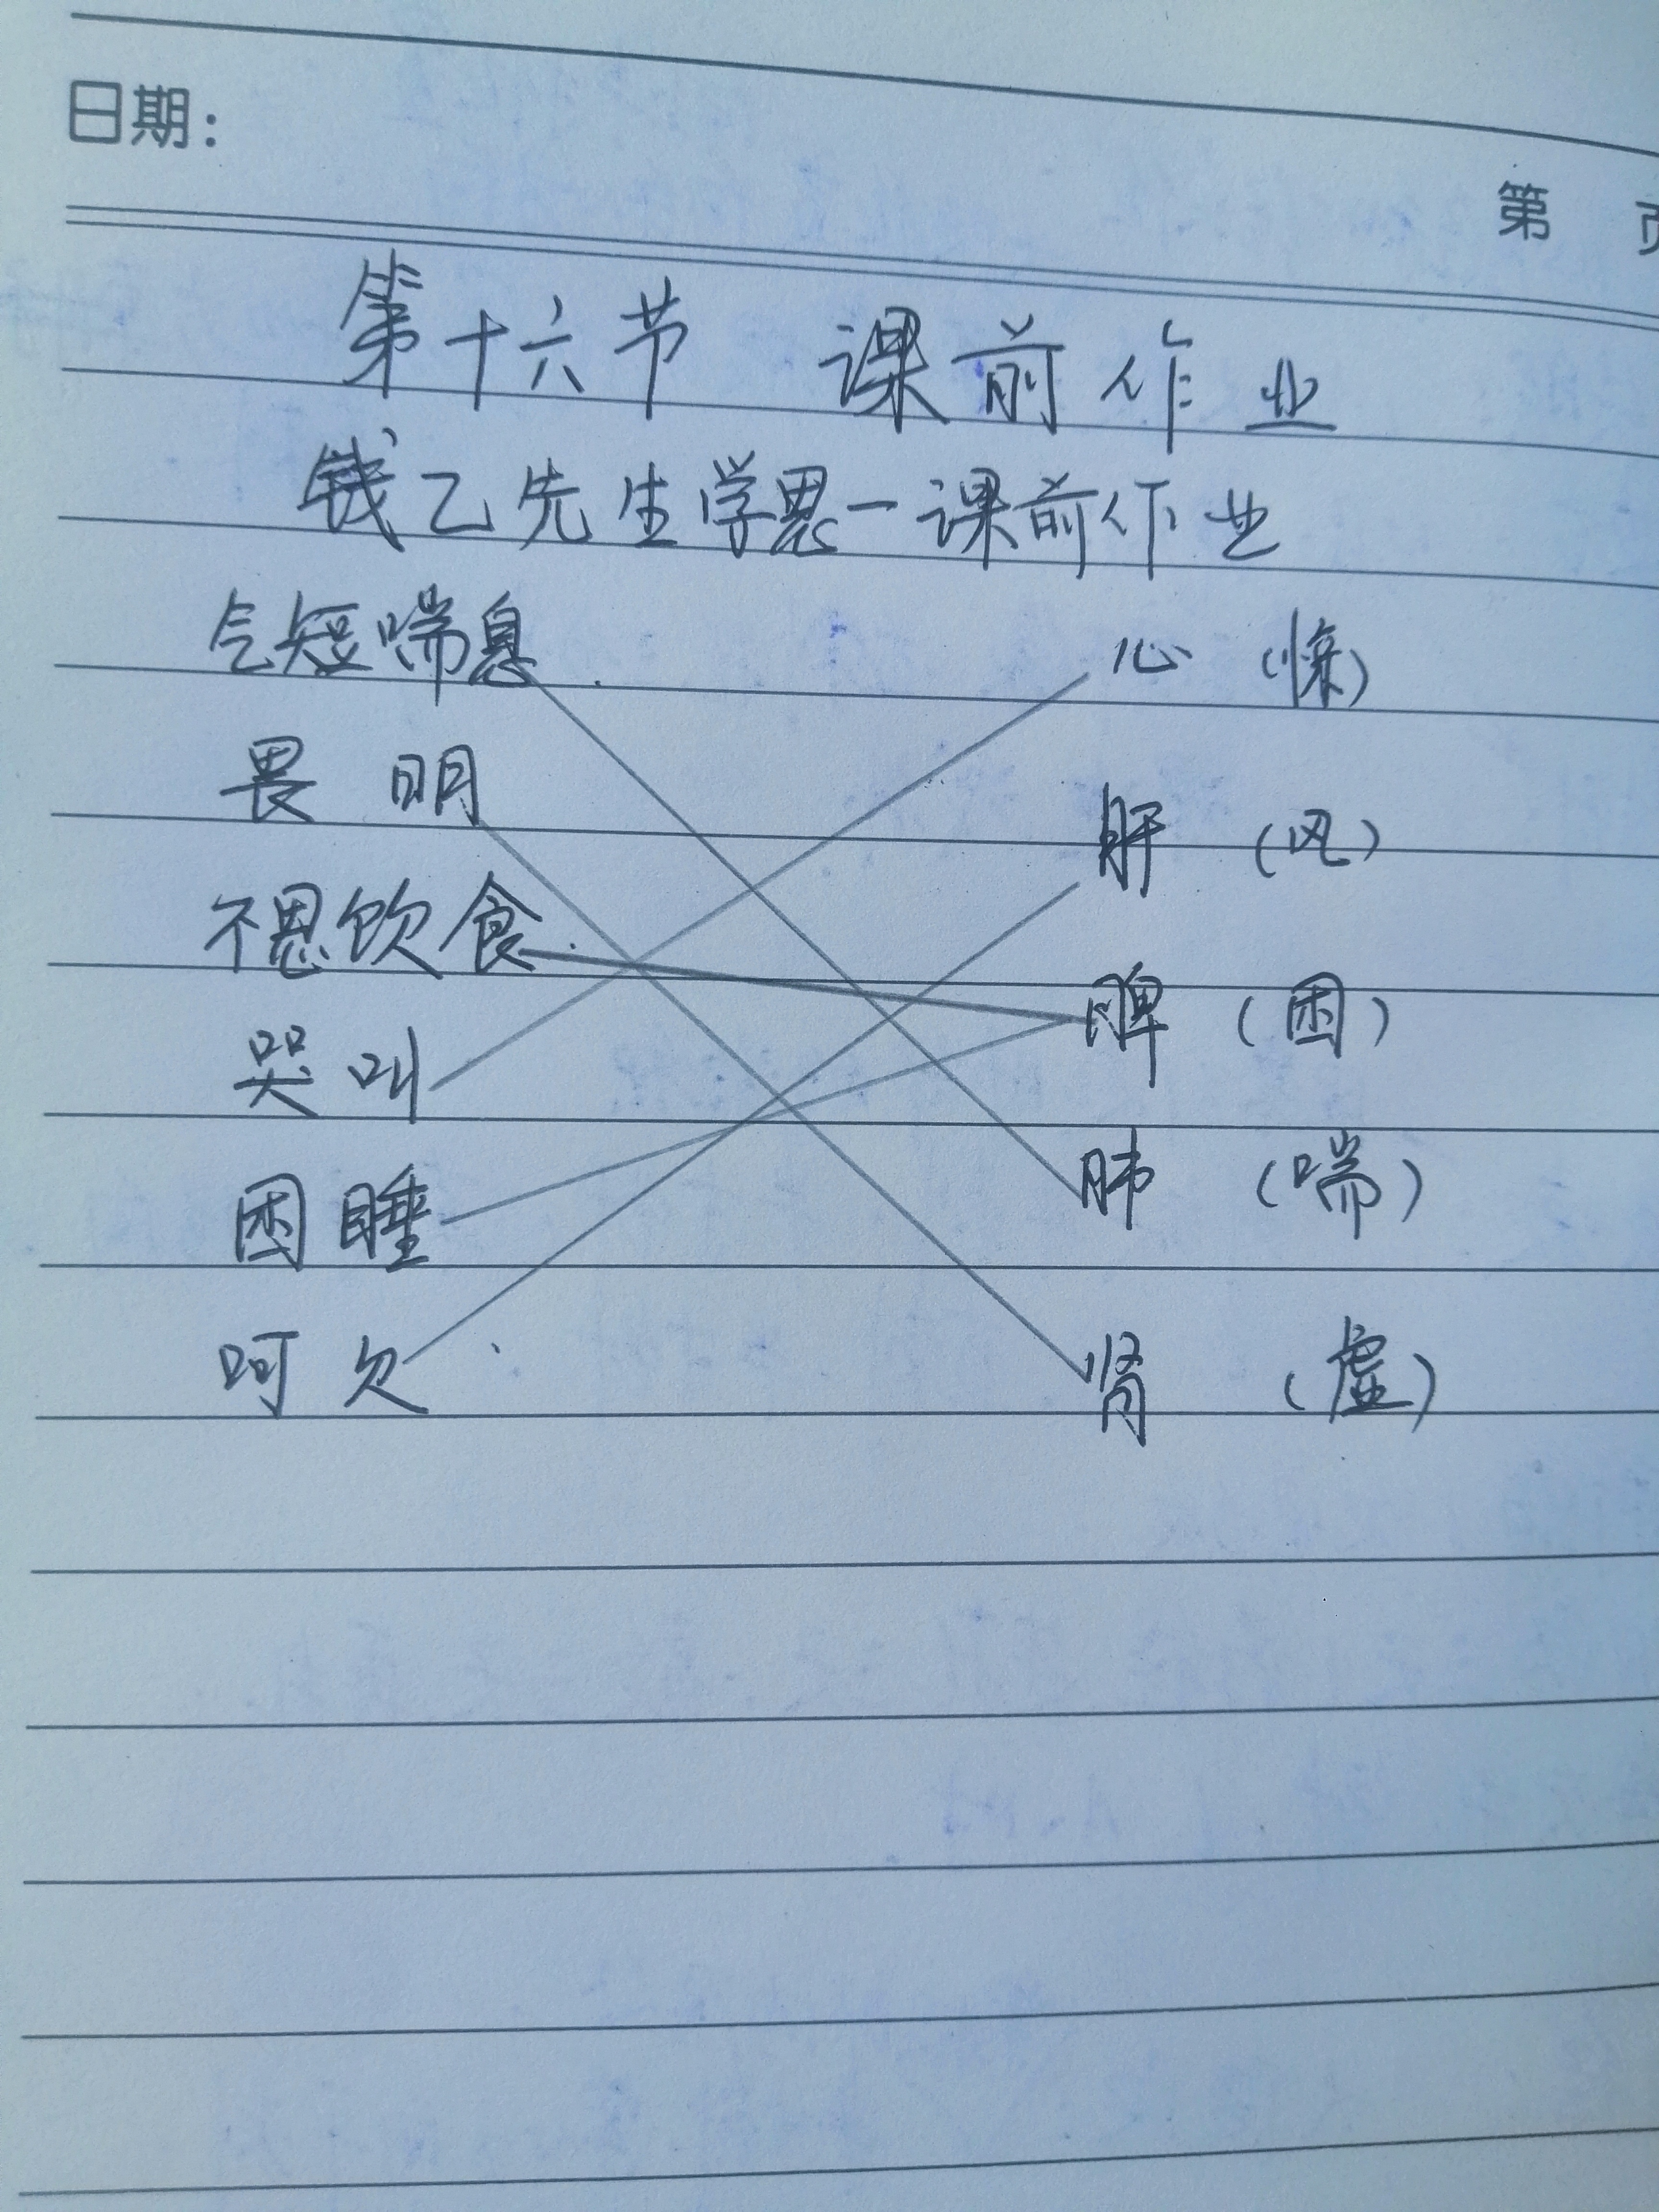 日期：
第 页
第十六节 课前作业
钱乙先生学思一课前作业
气短喘息 心（惊）
畏明 肝（风）
不思饮食 脾（困）
哭叫 肺（喘）
困睡 肾（虚）
呵欠